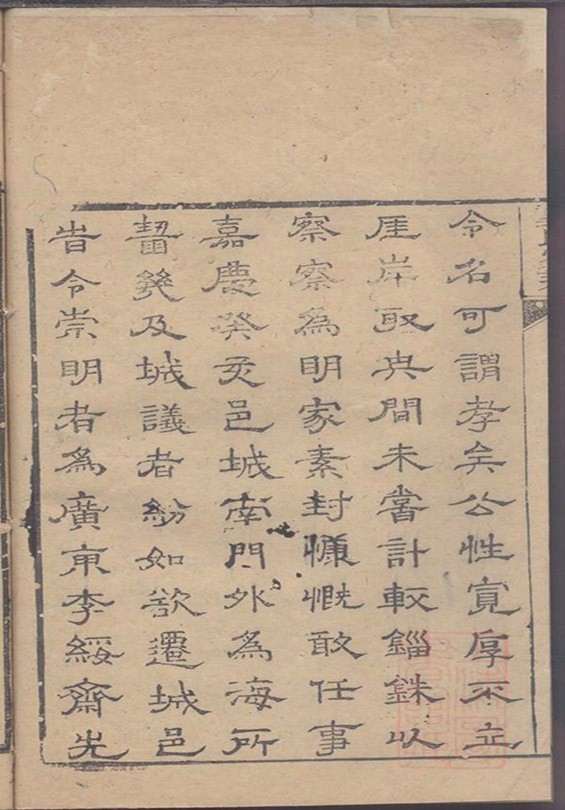 令名可謂孝矣公性寬厚不立
厓岸取與間未嘗計較錙銖以
察察爲明家素封慷慨敢任事
嘉慶癸亥邑城南門外爲海所
齧幾及城議者紛如欲遷城邑
旹令崇明者爲廣東李綏齋先